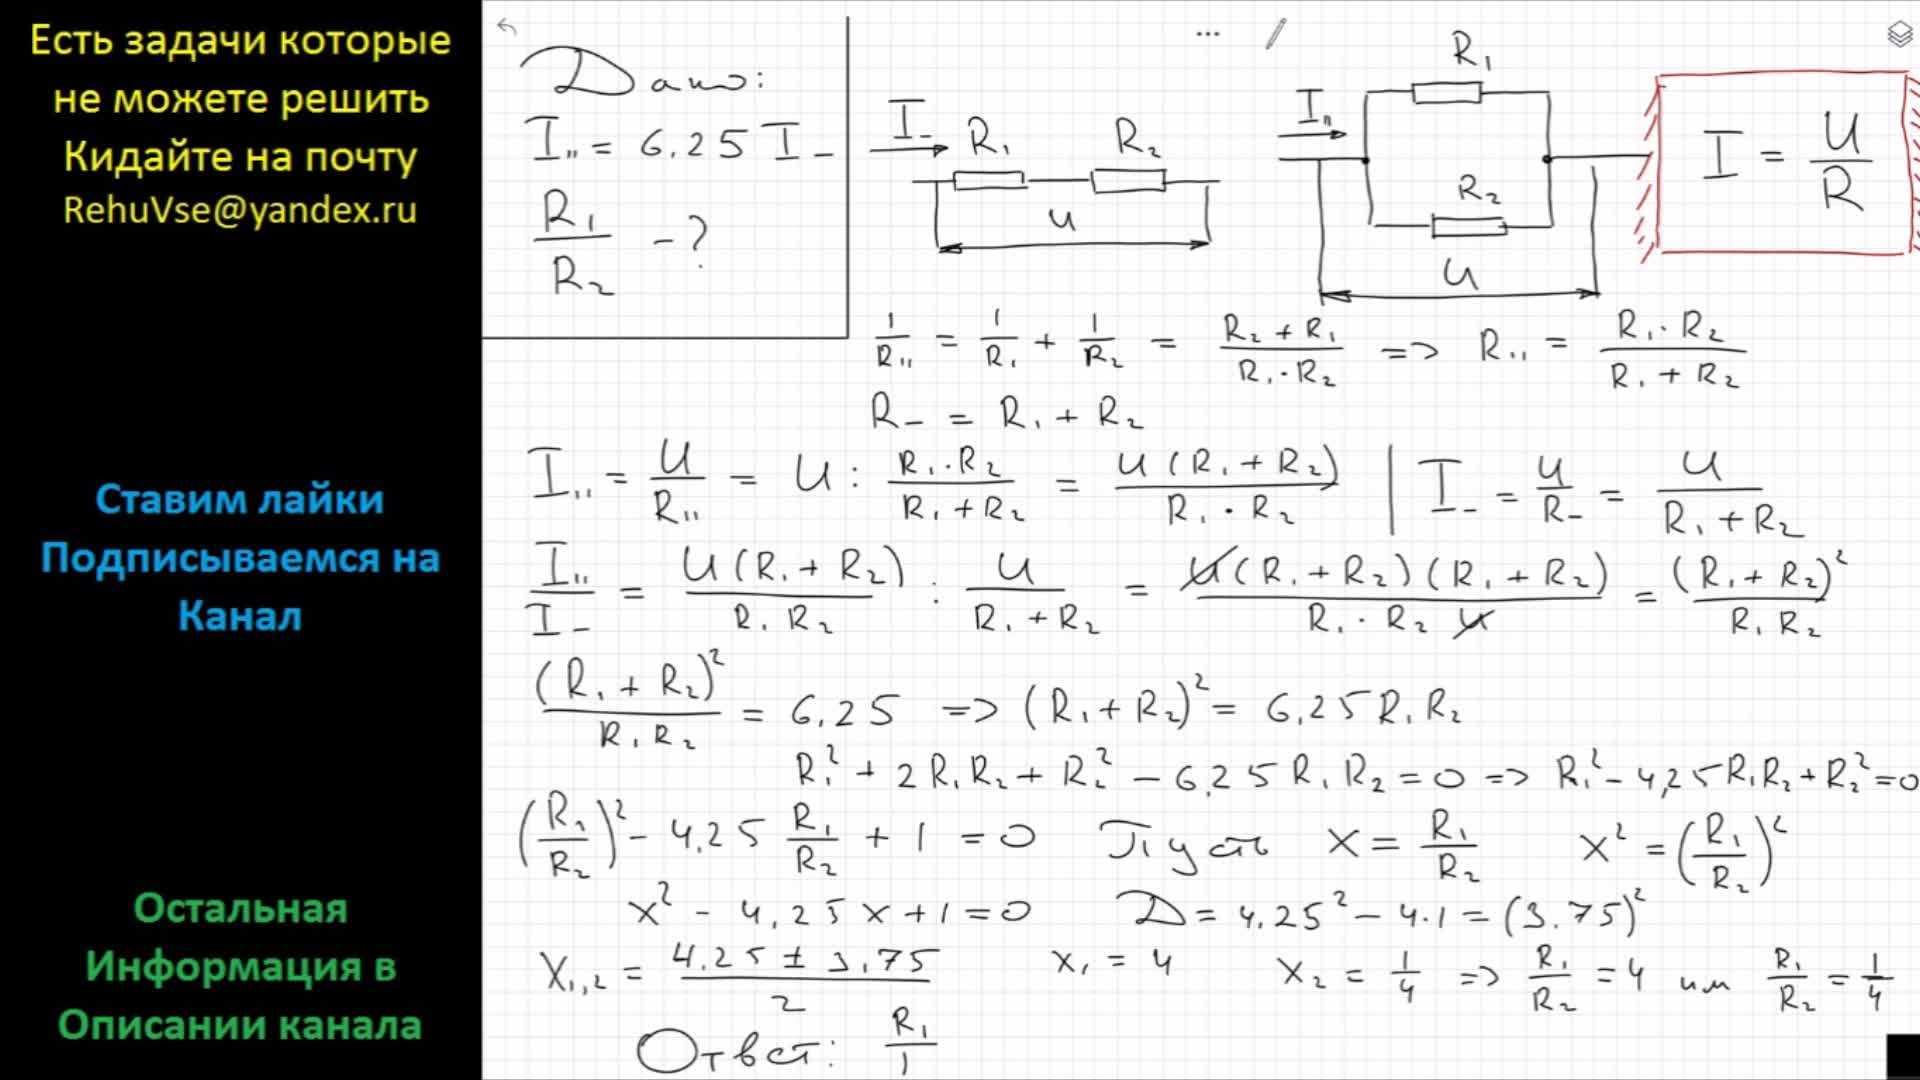 Есть задачи которые
не можете решить
Кидайте на почту
RehuVse@yandex.ru
Ставим лайки
Подписываемся на
Канал
Остальная
Информация в
Описании канала
Дано:
I" = 6.25 I_
R₁/R₂ - ?
I_ R₁ R₂
U
I" R₁
R₂
U
I = U/R
1/R" = 1/R₁ + 1/R₂ = (R₂ + R₁)/(R₁·R₂) => R" = (R₁·R₂)/(R₁ + R₂)
R_ = R₁ + R₂
I" = U/R" = U : (R₁·R₂)/(R₁ + R₂) = U(R₁ + R₂)/(R₁·R₂) | I_ = U/R_ = U/(R₁ + R₂)
I"/I_ = U(R₁ + R₂)/(R₁ R₂) : U/(R₁ + R₂) = U(R₁ + R₂)(R₁ + R₂)/(R₁·R₂ U) = (R₁ + R₂)²/(R₁ R₂)
(R₁ + R₂)²/(R₁ R₂) = 6,25 => (R₁ + R₂)² = 6,25 R₁ R₂
R₁² + 2R₁R₂ + R₂² - 6,25 R₁ R₂ = 0 => R₁² - 4,25R₁R₂ + R₂² = 0
(R₁/R₂)² - 4,25 R₁/R₂ + 1 = 0 Пусть x = R₁/R₂ x² = (R₁/R₂)²
x² - 4,25 x + 1 = 0 D = 4.25² - 4·1 = (3.75)²
x₁,₂ = (4.25 ± 3,75)/2 x₁ = 4 x₂ = 1/4 => R₁/R₂ = 4 или R₁/R₂ = 1/4
Ответ: R₁/1